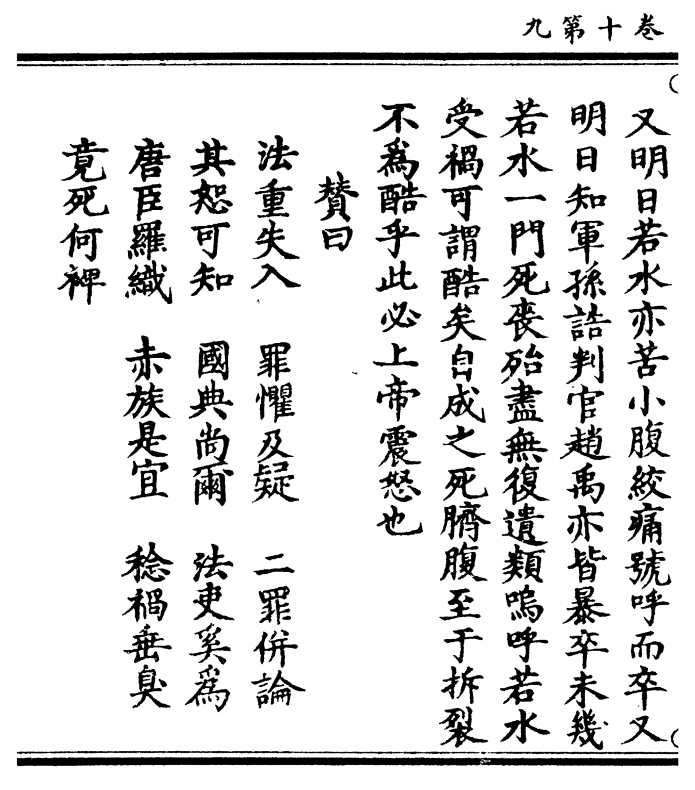 卷十第九
又明日若水亦苦小腹絞痛號呼而卒又
明日知軍孫誥判官趙禹亦皆暴卒未幾
若水一門死喪殆盡無復遺類嗚呼若水
受禍可謂酷矣自成之死臍腹至于拆裂
不爲酷乎此必上帝震怒也
贊曰
法重失入 罪懼及疑 二罪併論
其恕可知 國典尚爾 法吏奚爲
唐臣羅織 赤族是宜 稔禍垂臭
竟死何裨